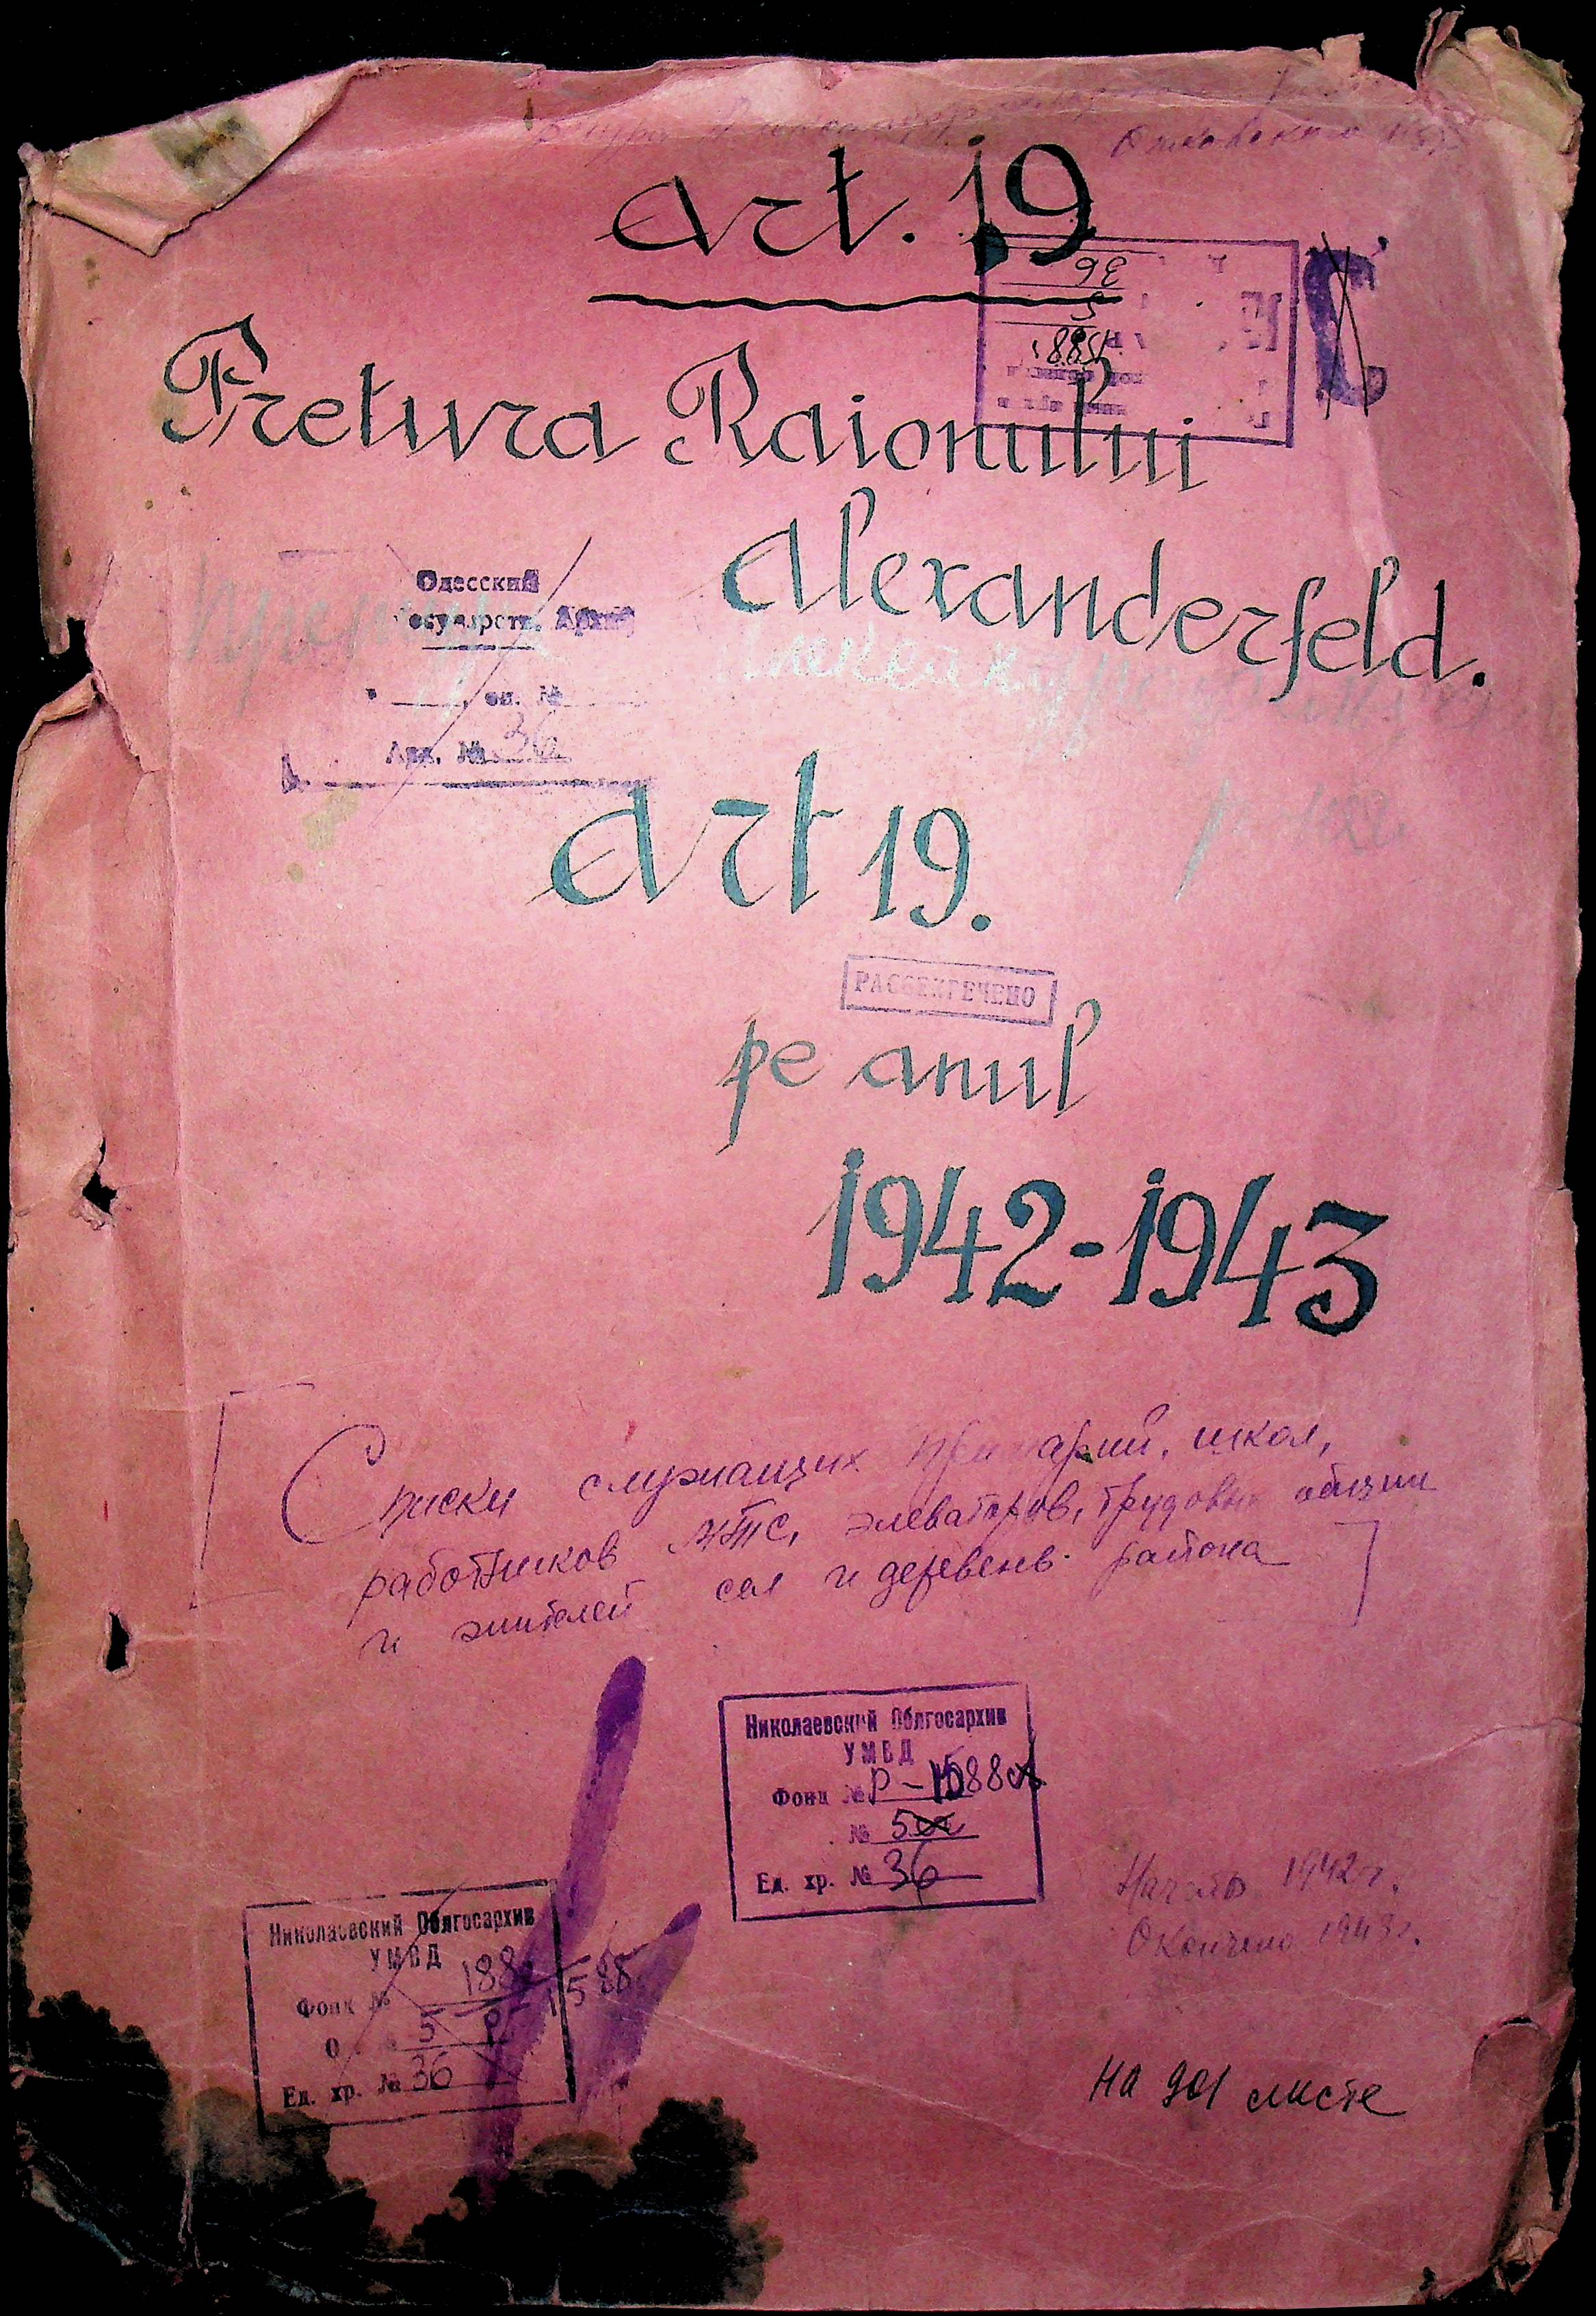 Art. 19
Pretura Raionului
Alexanderfeld.
Одесский
Государств. Архив
, оп. №
Арх. № 36
Art 19.
РАССЕКРЕЧЕНО
pe anul
1942-1943
Списки служащих примарий, школ,
работников МТС, элеваторов, трудовых общин
и жителей сел и деревень района
Николаевский Облгосархив
УМВД
Фонд № Р-1588
№ 5
Ед. хр. № 36
Начато 1942 г.
Окончено 1943 г.
Николаевский Облгосархив
УМВД
Фонд №
5
Ед. хр. № 36
на 901 листе